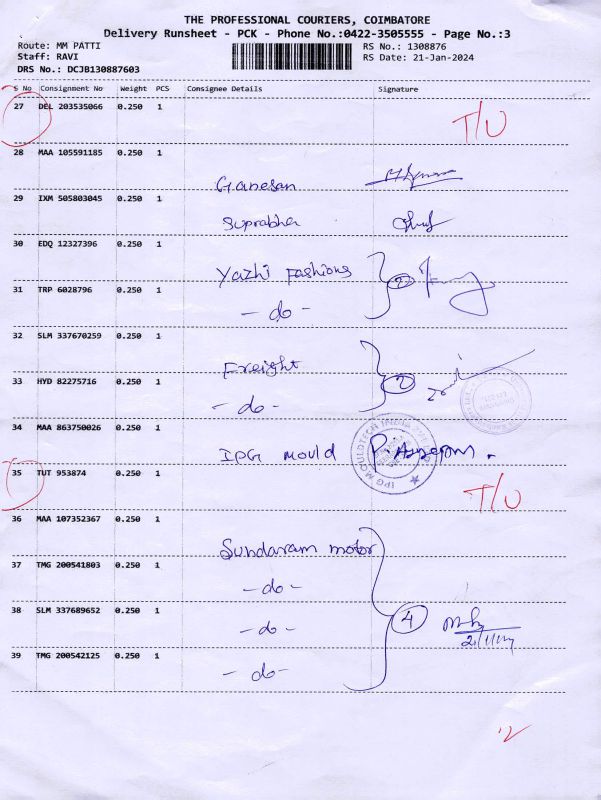 THE PROFESSIONAL COURIERS, COIMBATORE
Delivery Runsheet - PCK - Phone No.:0422-3505555 - Page No.:3
Route: MM PATTI RS No.: 1308876
Staff: RAVI RS Date: 21-Jan-2024
DRS No.: DCJB130887603
S No Consignment No Weight PCS Consignee Details Signature
27 DEL 203535066 0.250 1 T/U
28 MAA 105591185 0.250 1 Ganesan
29 IXM 505803045 0.250 1 Suprabha
30 EDQ 12327396 0.250 1 Yazhi Fashions 2
31 TRP 6028796 0.250 1 - do -
32 SLM 337670259 0.250 1 Freight 2
33 HYD 82275716 0.250 1 - do -
34 MAA 863750026 0.250 1 IPG mould
35 TUT 953874 0.250 1 T/U
36 MAA 107352367 0.250 1 Sundaram motor
37 TMG 200541803 0.250 1 - do -
38 SLM 337689652 0.250 1 - do - 4
39 TMG 200542125 0.250 1 - do -